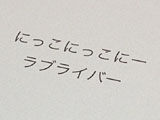 にっこにっこにー
ラブライバー